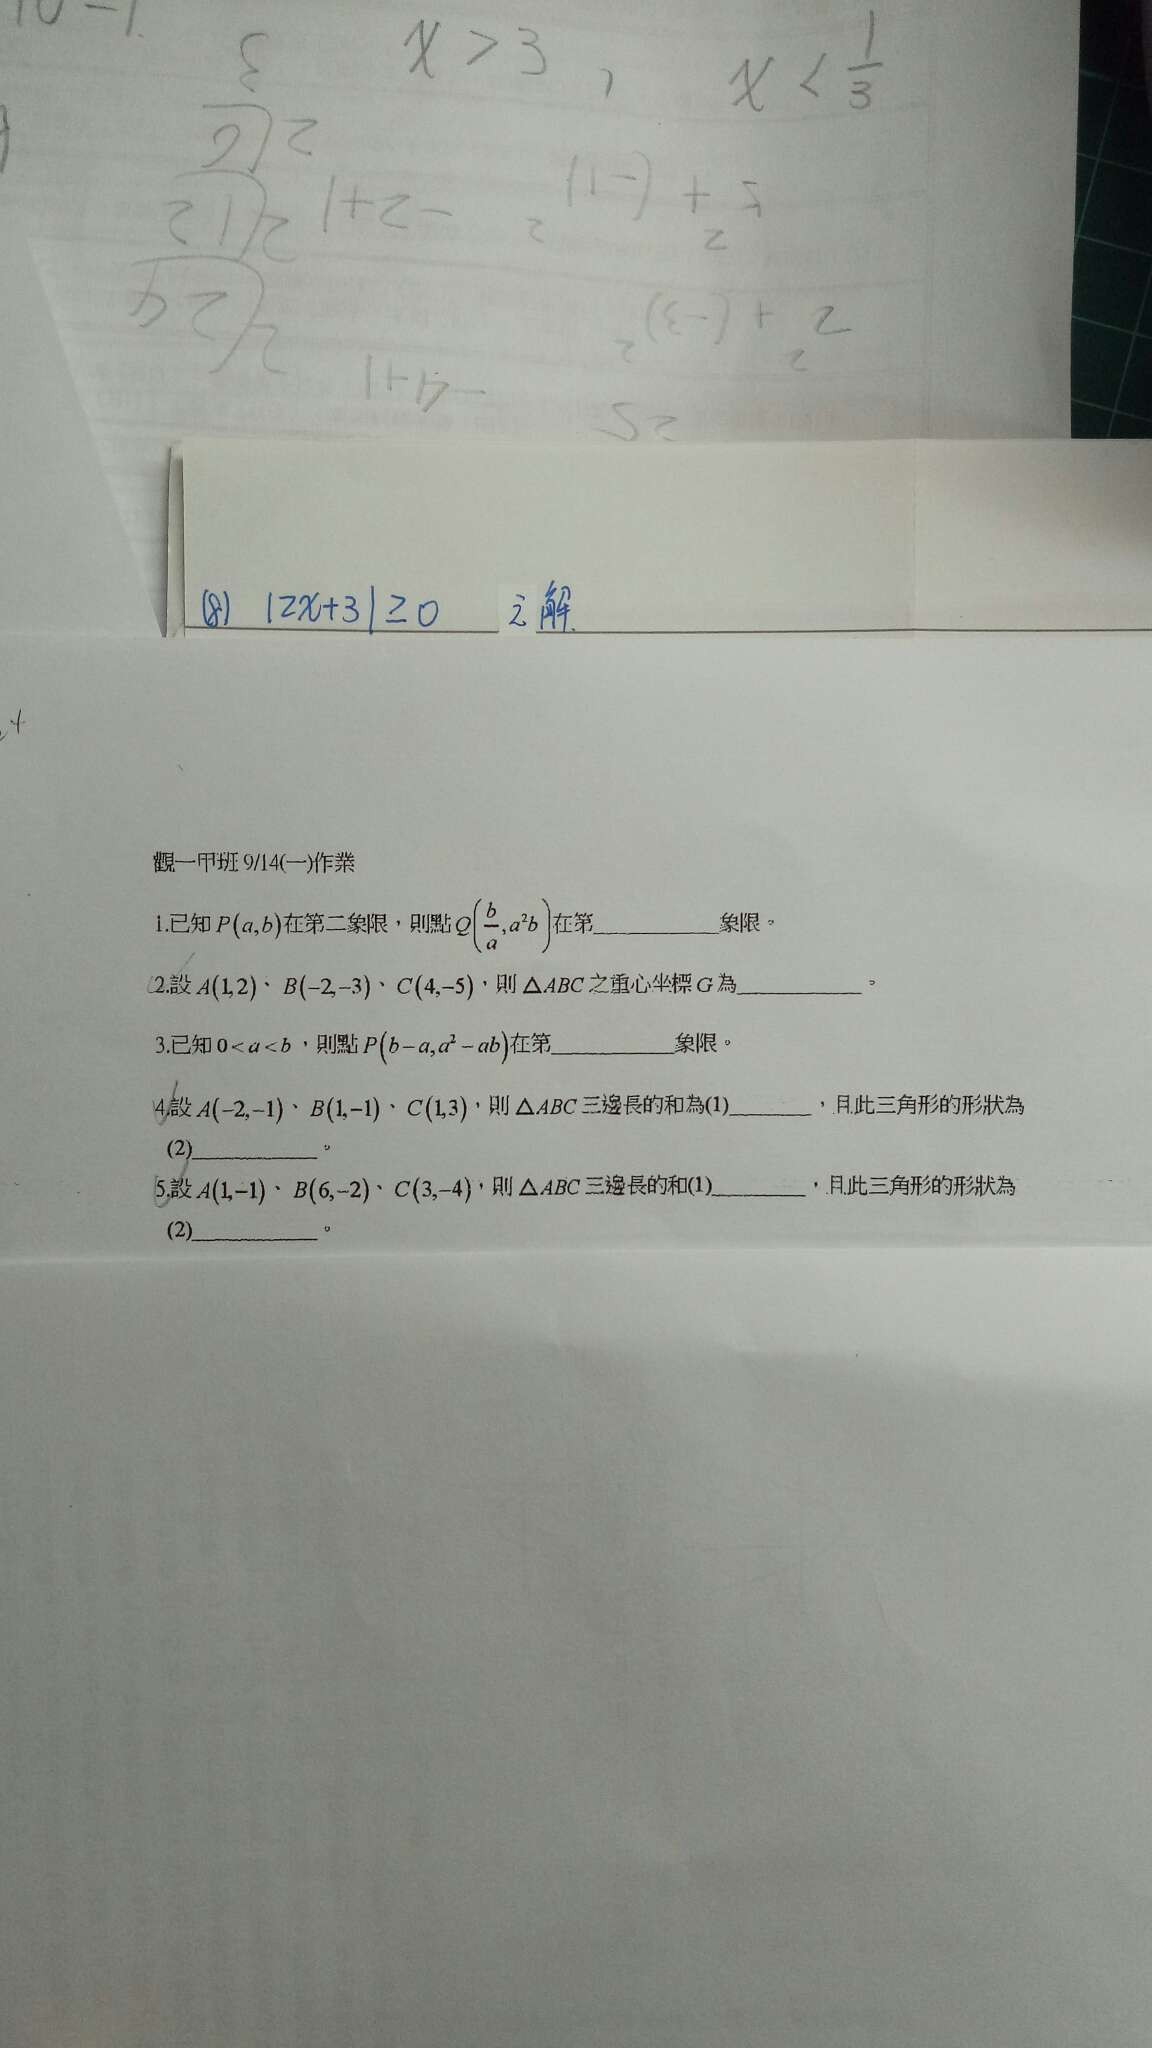 10-1
x > 3 , x < 1/3
3
2
6
2 + (-1)
5 + 2
-2+1
2
12
2 + (-3)
2
24
-4+1
25
(8) |2x+3| ≥ 0 之解
觀一甲班 9/14(一)作業
1.已知 P(a,b)在第二象限，則點 Q(b/a, a²b)在第____________象限。
2.設 A(1,2)、B(-2,-3)、C(4,-5)，則 △ABC 之重心坐標 G 為____________。
3.已知 0<a<b，則點 P(b-a,a²-ab)在第____________象限。
4.設 A(-2,-1)、B(1,-1)、C(1,3)，則 △ABC 三邊長的和為(1)________，且此三角形的形狀為
(2)____________。
5.設 A(1,-1)、B(6,-2)、C(3,-4)，則 △ABC 三邊長的和(1)_________，且此三角形的形狀為
(2)____________。